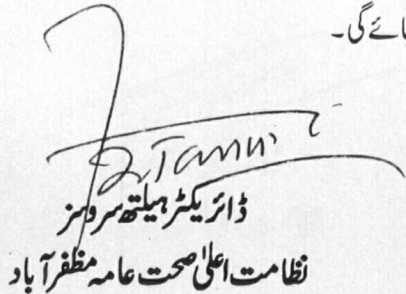 ئے گی۔
ڈائریکٹر ہیلتھ سروسز
نظامت اعلیٰ صحت عامہ مظفرآباد